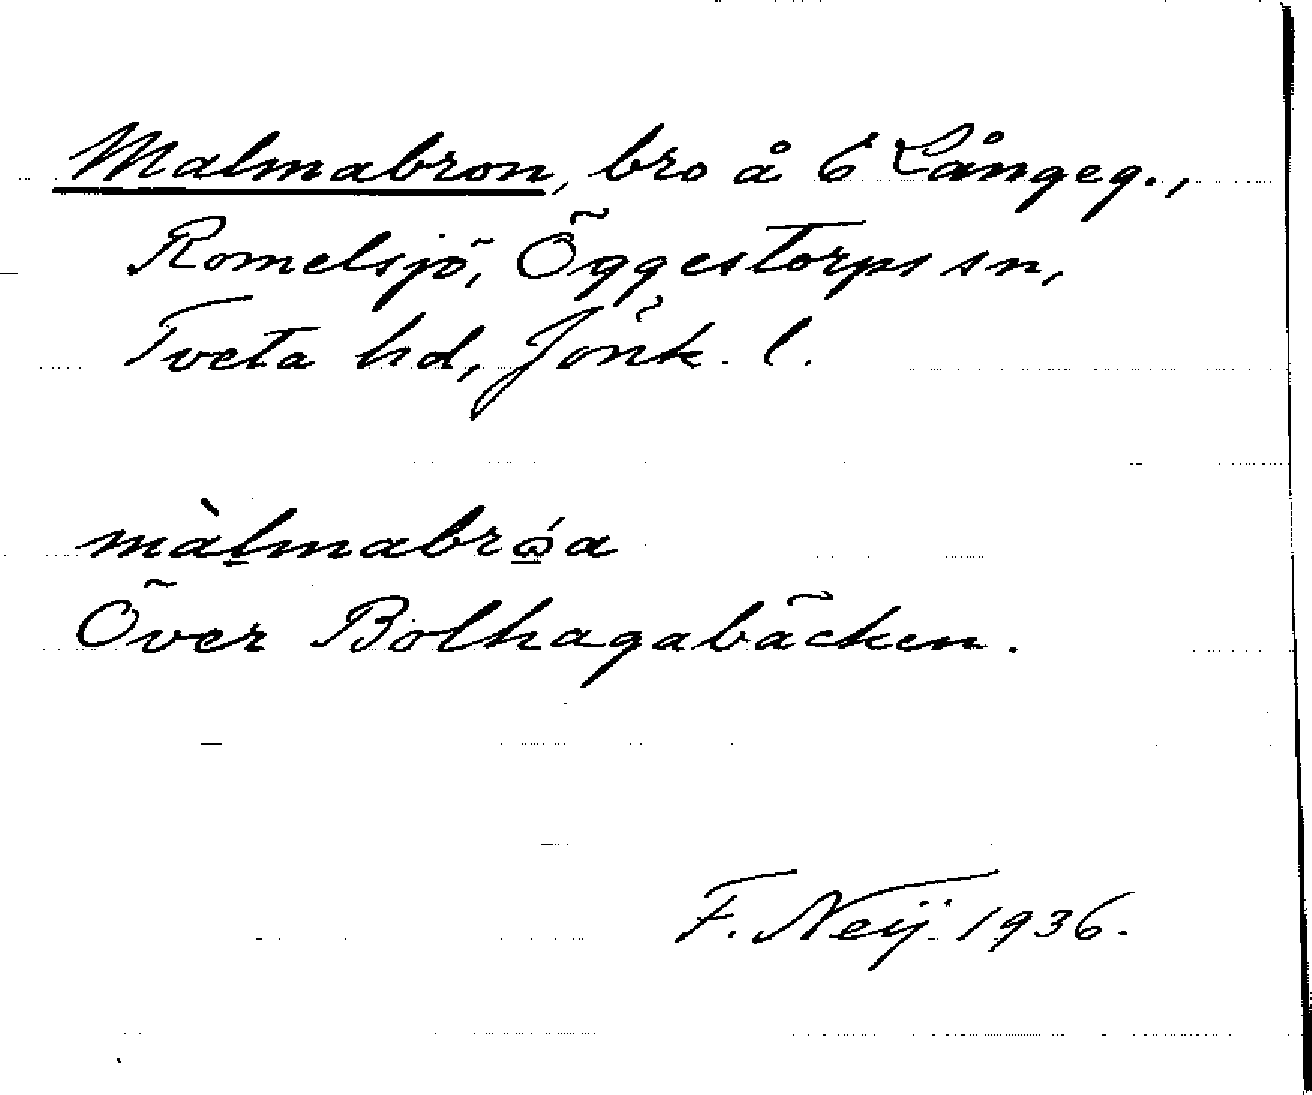 Malmabron, bro å 6 Långeg.,
Romelsjö, Öggestorps sn,
Tveta hd, Jönk. l.
màlmabrǿa
Över Bolhagabäcken.
F. Neij 1936.